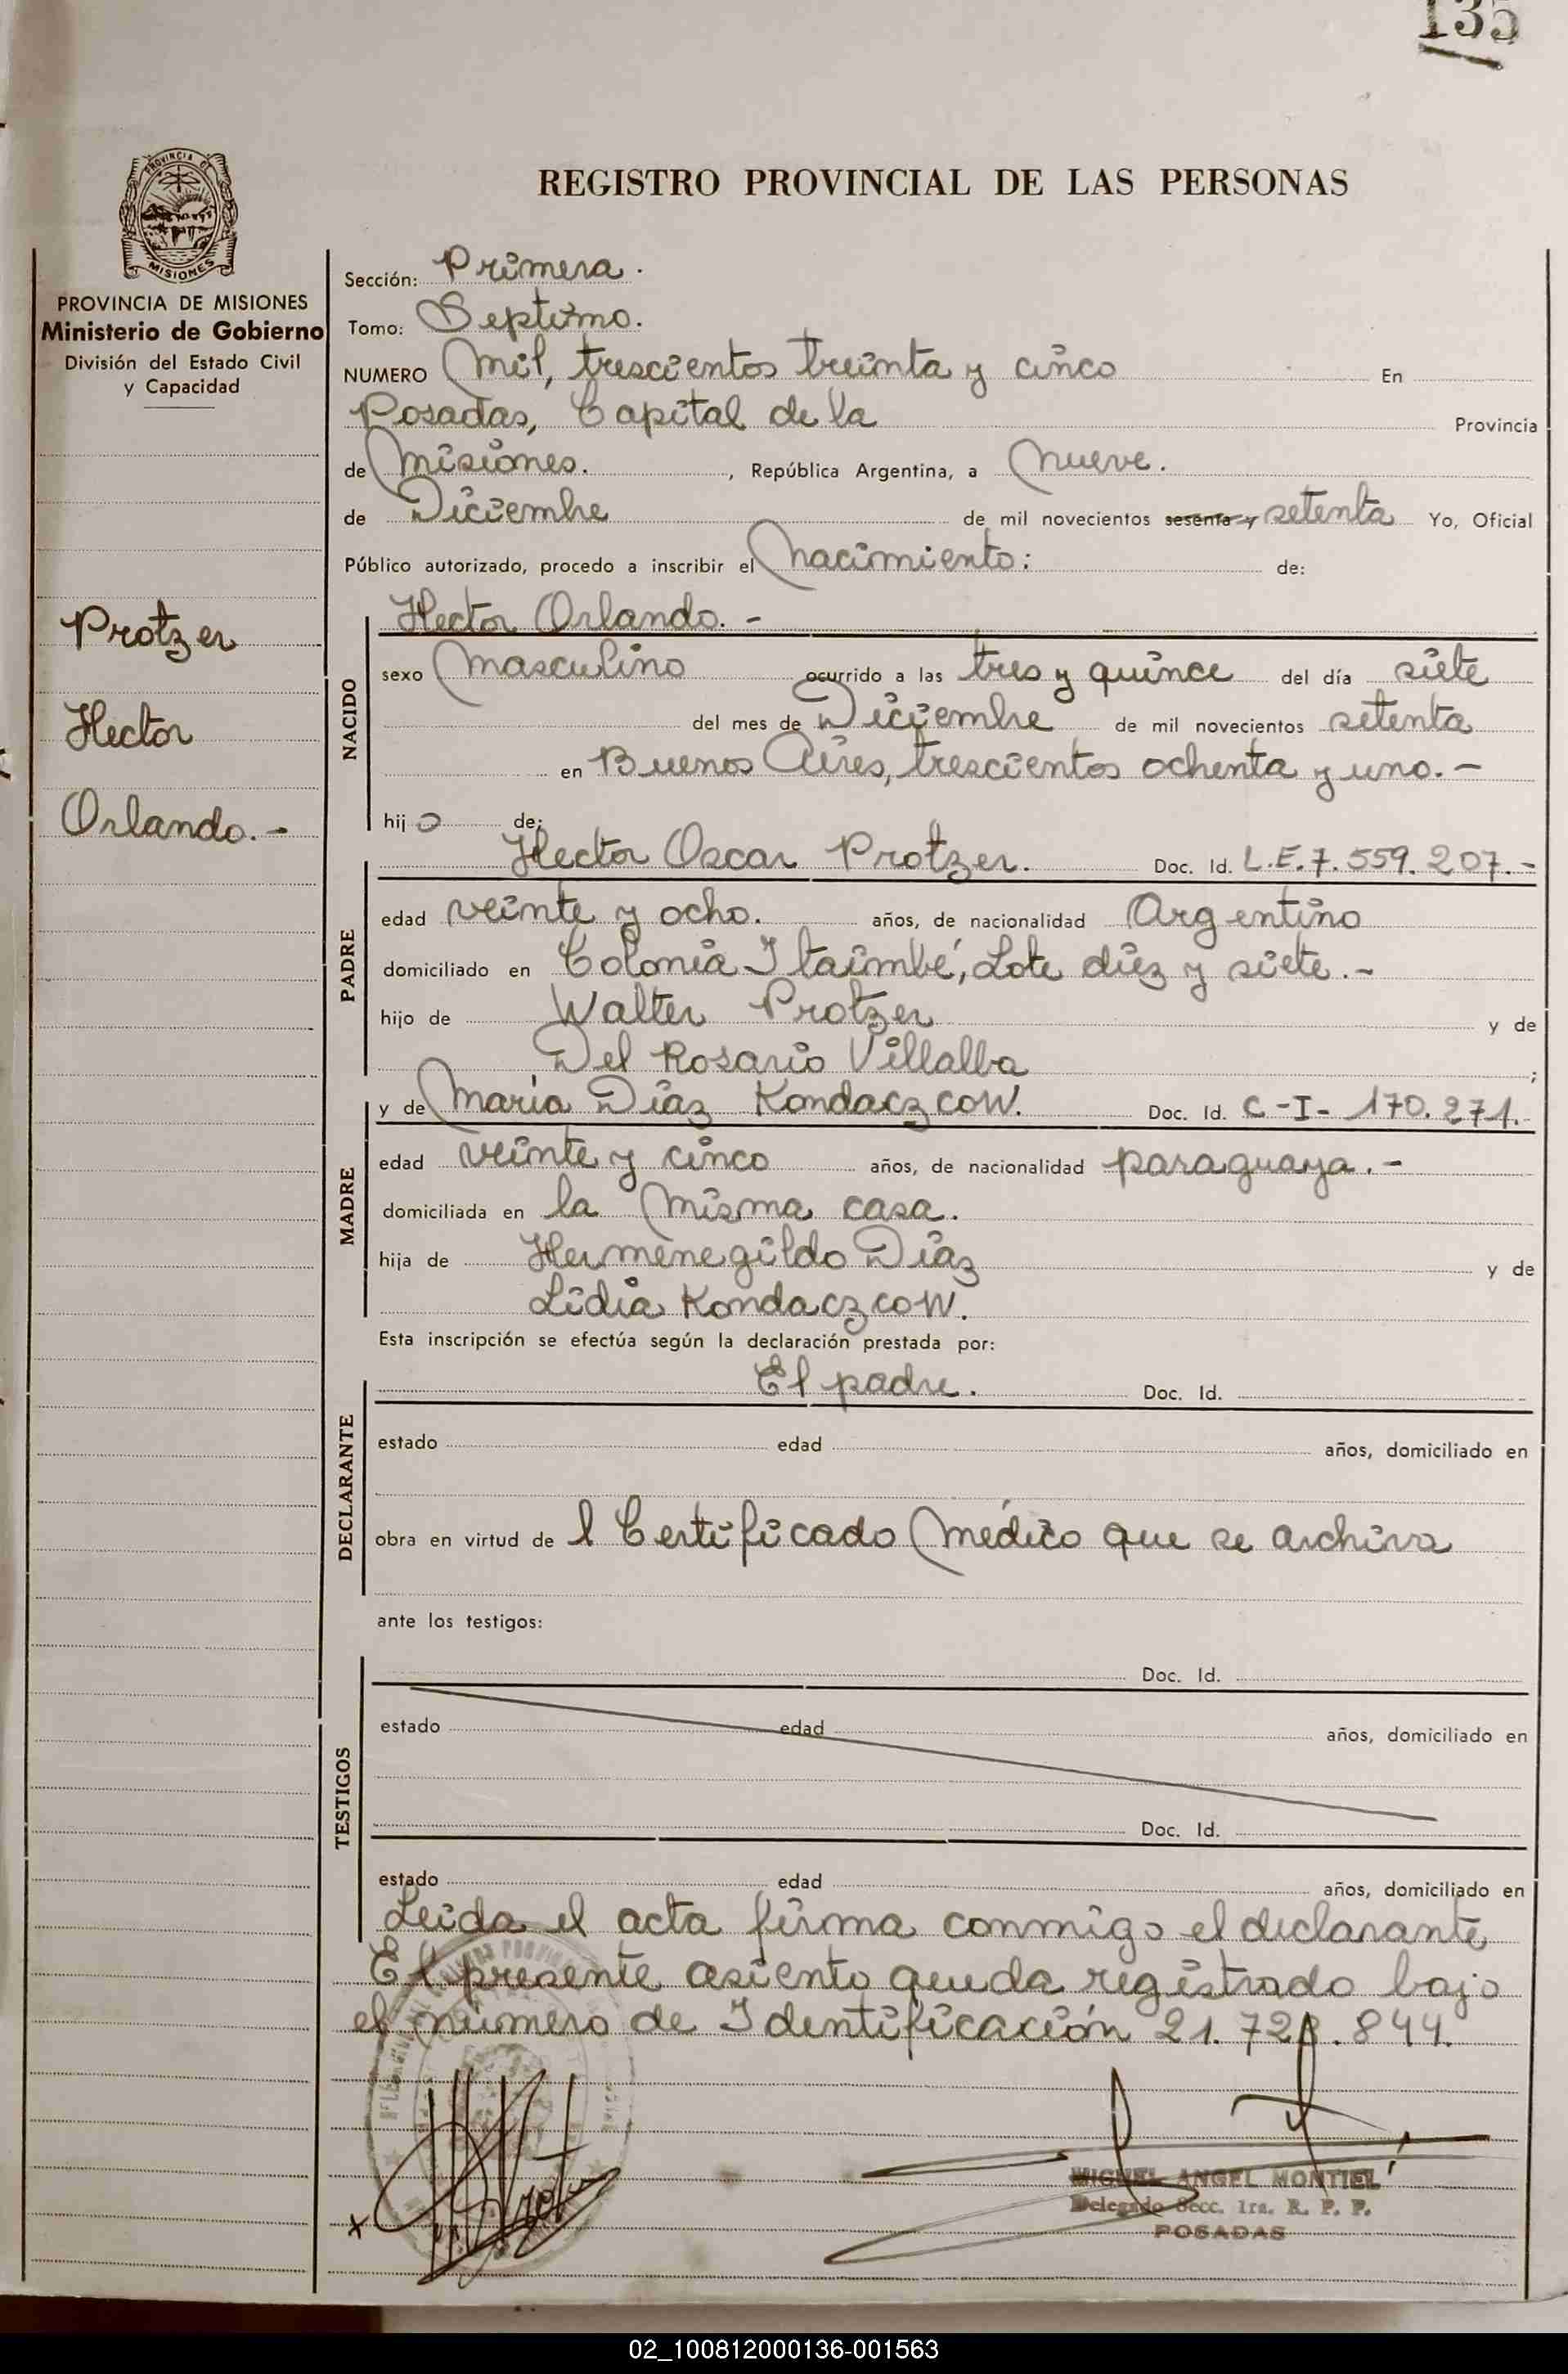 135
REGISTRO PROVINCIAL DE LAS PERSONAS
PROVINCIA DE
MISIONES
PROVINCIA DE MISIONES
Ministerio de Gobierno
División del Estado Civil
y Capacidad
Protzer
Hector
Orlando.-
Sección: Primera.
Tomo: Septimo.
NUMERO Mil, trescientos treinta y cinco En
Posadas, Capital de la Provincia
de Misiones. , República Argentina, a Nueve.
de Diciembre de mil novecientos sesenta y setenta Yo, Oficial
Público autorizado, procedo a inscribir el Nacimiento: de:
NACIDO
Hector Orlando. -
sexo Masculino ocurrido a las tres y quince del día siete
del mes de Diciembre de mil novecientos setenta
en Buenos Aires, trescientos ochenta y uno. -
hijo de:
PADRE
Hector Oscar Protzer. Doc. Id. L.E. 7.559.207.-
edad veinte y ocho. años, de nacionalidad Argentino
domiciliado en Colonia Itaimbé, Lote diez y siete.-
hijo de Walter Protzer y de
Del Rosario Villalba ;
MADRE
y de María Diaz Kondaczcow. Doc. Id. C-I- 170.271.-
edad veinte y cinco años, de nacionalidad paraguaya.-
domiciliada en la misma casa.
hija de Hermenegildo Diaz y de
Lidia Kondaczcow.
Esta inscripción se efectúa según la declaración prestada por:
DECLARANTE
El padre. Doc. Id.
estado edad años, domiciliado en
obra en virtud de l Certificado Médico que se archiva
ante los testigos:
TESTIGOS
Doc. Id.
estado edad años, domiciliado en
Doc. Id.
estado edad años, domiciliado en
Leida el acta firma conmigo el declarante
El presente asiento queda registrado bajo
el número de Identificación 21.723.844.
MIGUEL ANGEL MONTIEL
Delegado Secc. 1ra. R. P. P.
POSADAS
02_100812000136-001563